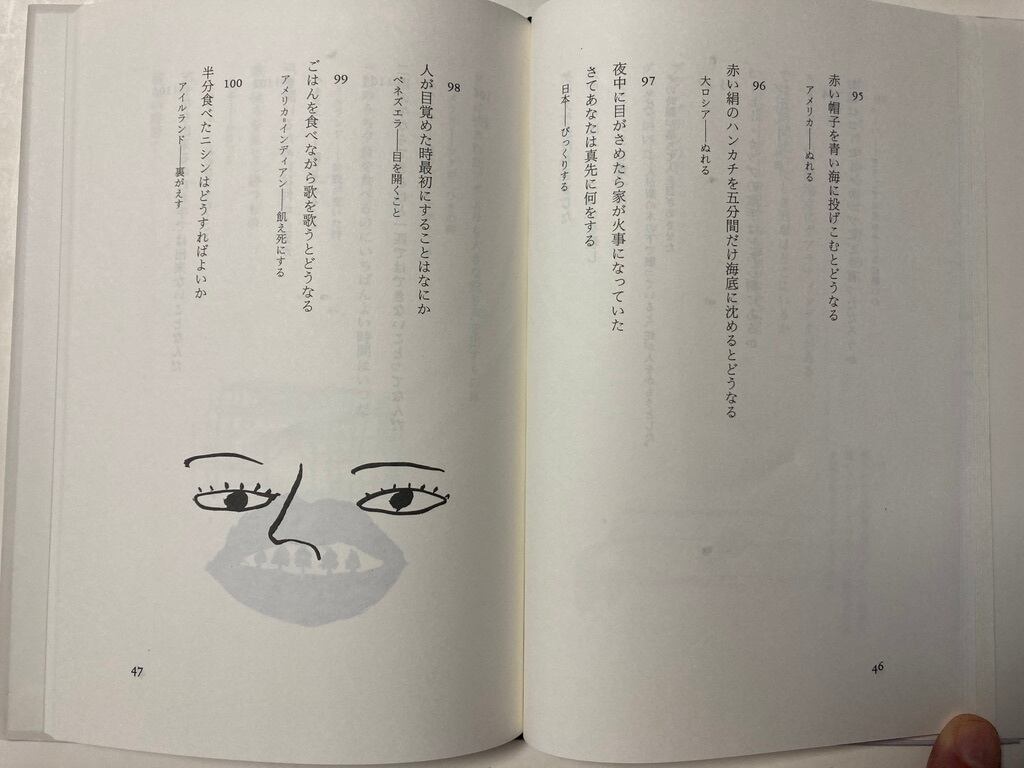 95
赤い帽子を青い海に投げこむとどうなる
アメリカ――ぬれる
96
赤い絹のハンカチを五分間だけ海底に沈めるとどうなる
大ロシア――ぬれる
97
夜中に目がさめたら家が火事になっていた
さてあなたは真先に何をする
日本――びっくりする
46
98
人が目覚めた時最初にすることはなにか
ベネズエラ――目を開くこと
99
ごはんを食べながら歌を歌うとどうなる
アメリカ=インディアン――飢え死にする
100
半分食べたニシンはどうすればよいか
アイルランド――裏がえす
47